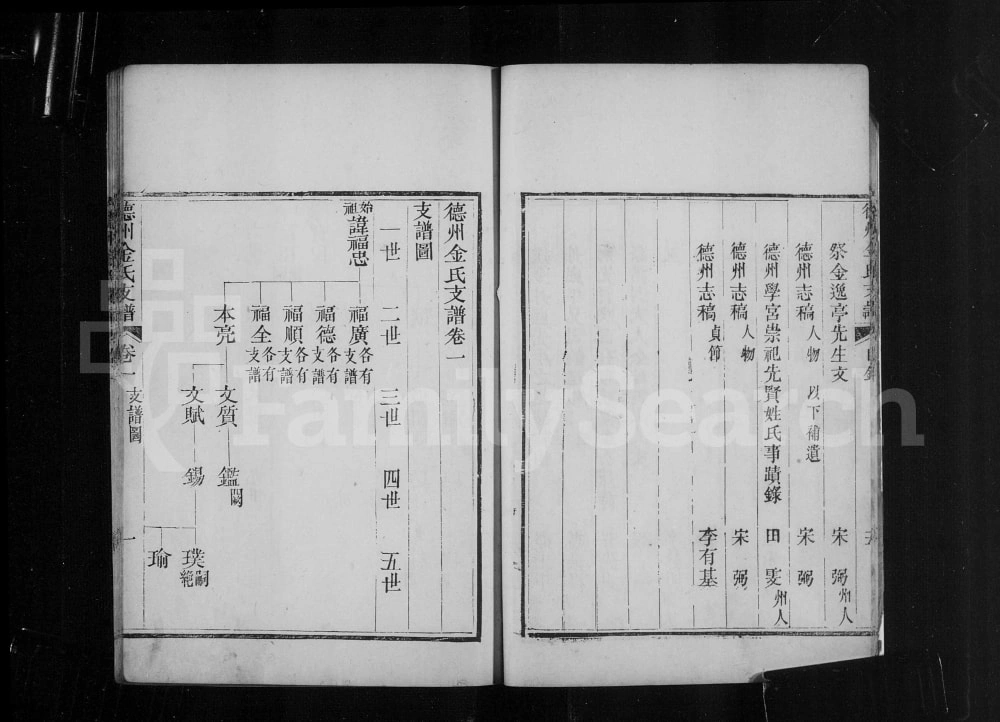 祭金逸亭先生文 宋弼州人
德州志稿人物 以下補遺 宋弼
德州學宮崇祀先賢姓氏事蹟錄 田雯州人
德州志稿人物 宋弼
德州志稿貞節 李有基
德州金氏支譜卷一
支譜圖
一世 二世 三世 四世 五世
始祖諱福忠
福廣各有支譜
福德各有支譜
福順各有支譜
福全各有支譜
本亮 文質 鑑闕
文賦 錫 璞嗣絕
瑜
德州金氏支譜 卷一 支譜圖 一
FamilySearch